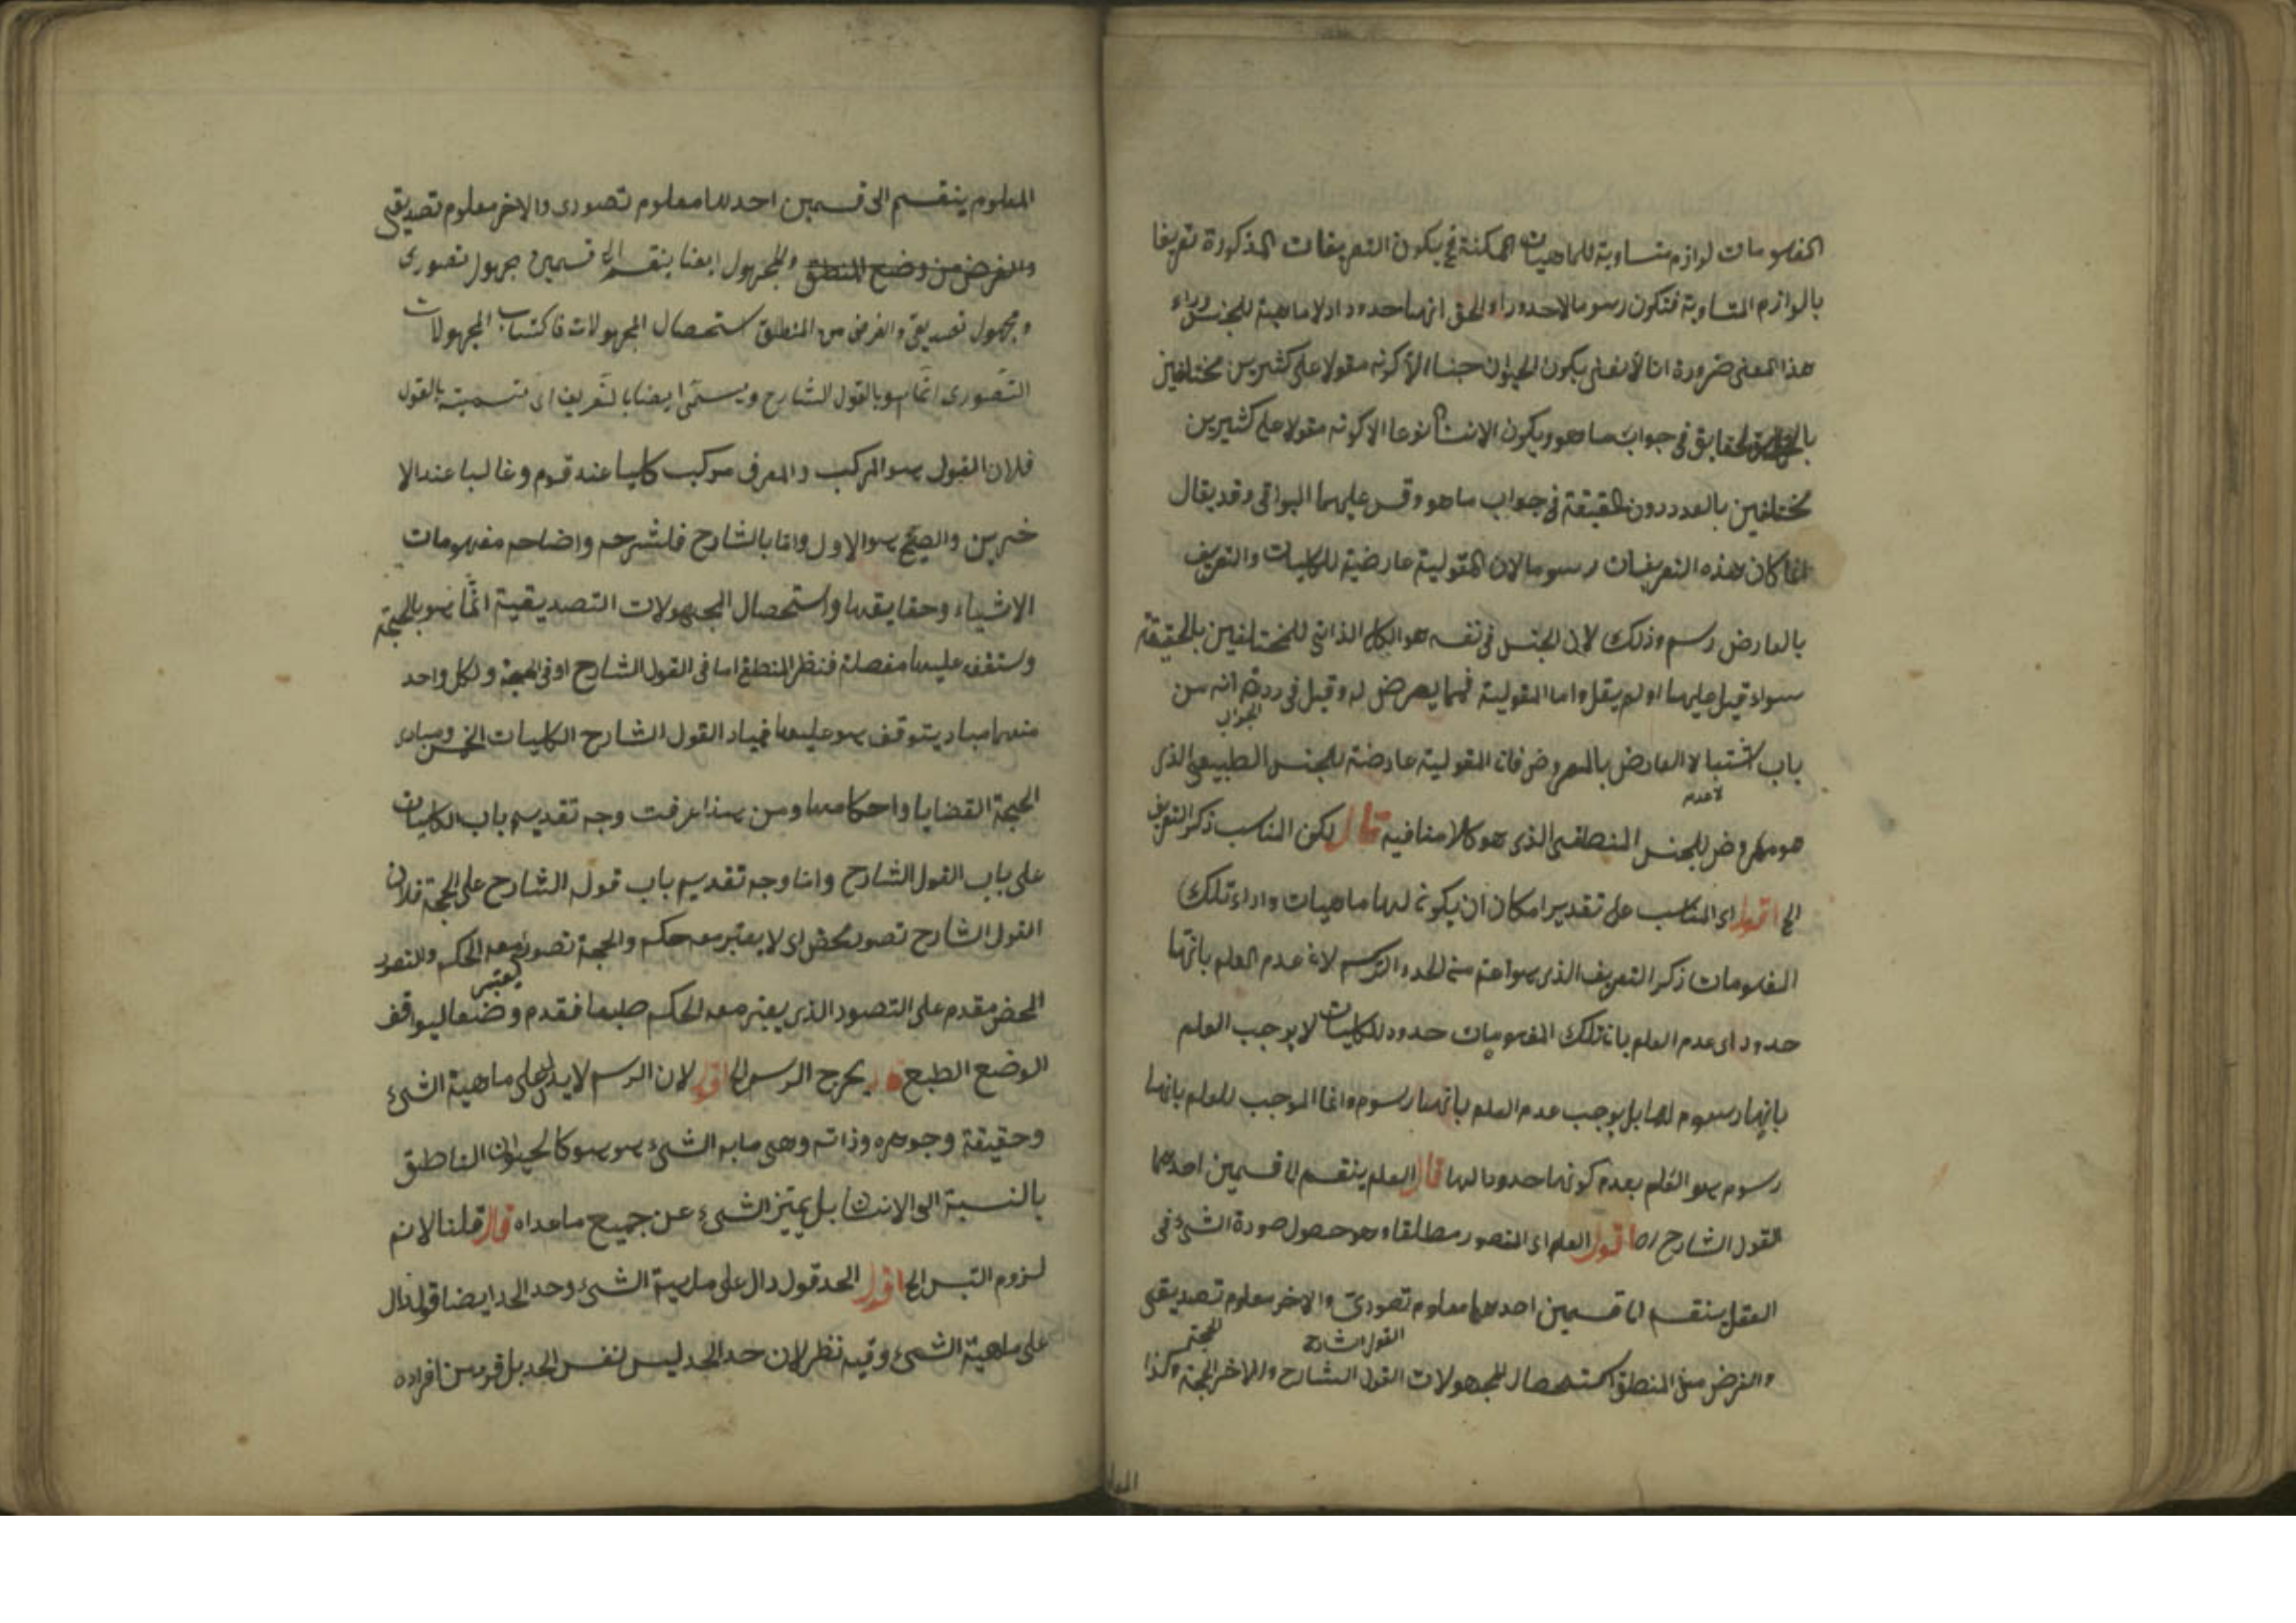 المفهومات لوازم متساوية للماهيات الممكنة فح يكون التعريفات المذكورة تعريفا
بالوازم المتساوية فتكون رسوما لاحدودا والحق انها حدود اذ لا ماهية للجنس وراء
هذا المعنى ضرورة انا لا نعنى بكون الحيوان جنسا الا كونه مقولا على كثيرين مختلفين
بالحقايق في جواب ما هو وبكون الانسان نوعا الا كونه مقولا على كثيرين
مختلفين بالعدد دون الحقيقة في جواب ما هو وقس عليهما البواقى وقد يقال
انما كان هذه التعريفات رسوما لان المقولية عارضية للكليات والتعريف
بالعارض رسم وذلك لان الجنس في نفسه هو الكلى الذاتى للمختلفين بالحقيقة
سواء قيل عليها او لم يقل واما المقولية فمما يعرض له وقيل في رده انه من
باب اشتباه العارض بالمعروض فان المقولية عارضة للجنس الطبيعى الذى
هو معروض للجنس المنطقى الذى هو كلامنا فيه قال لكن المناسب ذكر التعريف
الخ اقول اى المناسب على تقدير امكان ان يكون لها ماهيات وراء تلك
المفهومات ذكر التعريف الذى هو اعم من الحد والرسم لان عدم العلم بانها
حدود اى عدم العلم بان تلك المفهومات حدود للكليات لا يوجب العلم
بانها رسوم لها بل يوجب عدم العلم بانها رسوم وانما الموجب للعلم بانها
رسوم هو العلم بعدم كونها حدودا لها قال العلم ينقسم الى قسمين احدهما
القول الشارح اه اقول العلم اى التصور مطلقا وهو حصول صورة الشئ فى
العقل ينقسم الى قسمين احدهما معلوم تصورى والاخر معلوم تصديقى
القول الشارح الحجة
والغرض من المنطق استحصال المجهولات القول الشارح والاخر الحجة وكذا
المعلوم ينقسم الى قسمين احدهما معلوم تصورى والاخر معلوم تصديقى
والغرض من وضع المنطق والمجهول ايضا ينقسم الى قسمين مجهول تصورى
ومجهول تصديقى والغرض من المنطق استحصال المجهولات فاكتساب المجهولات
التصورى انما هو بالقول الشارح ويسمى ايضا بالتعريف اى تسميته بالقول
فلان القول هو المركب والمعرف مركب كليا عند قوم وغالبا عند الا
خرين والصحيح هو الاول واما بالشارح فلشرحه واضاحه مفهومات
الاشياء وحقايقها واستحصال المجهولات التصديقية انما هو بالحجة
وستقف عليها مفصلة فنظر المنطق اما فى القول الشارح او فى الحجة ولكل واحد
منهما مباد يتوقف هو عليها فمباد القول الشارح الكليات الخمس ومبادى
الحجة القضايا واحكامها ومن هذا عرفت وجه تقديم باب الكليات
على باب القول الشارح واما وجه تقديم باب قول الشارح على الحجة فلان
القول الشارح تصور محض اى لا يعتبر معه حكم والحجة تصور يعتبر معه الحكم والتصور
المحض مقدم على التصور الذى يعتبر معه الحكم طبعا فقدم وضعا ليوافق
الوضع الطبع قال يخرج الرسم الخ اقول لان الرسم لا يدل على ماهية الشئ
وحقيقة وجوهره وذاته وهى مابه الشئ هو هو كالحيوان الناطق
بالنسبة الى الانسان بل يميز الشئ عن جميع ماعداه قال قلنا لانم
لزوم التسلس الخ اقول الحد قول دال على ماهية الشئ وحد الحد ايضا قول دال
على ماهية الشئ وفيه نظر لان حد الحد ليس نفس الحد بل فرد من افراده